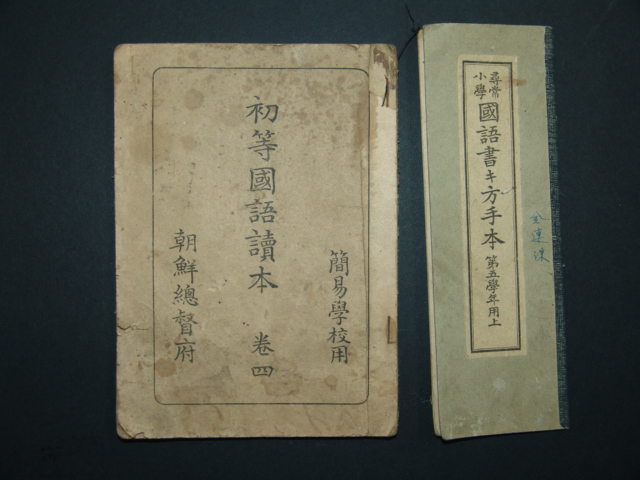 簡易學校用
初等國語讀本 卷四
朝鮮總督府
尋常
小學
國語書キ方手本 第五學年用上